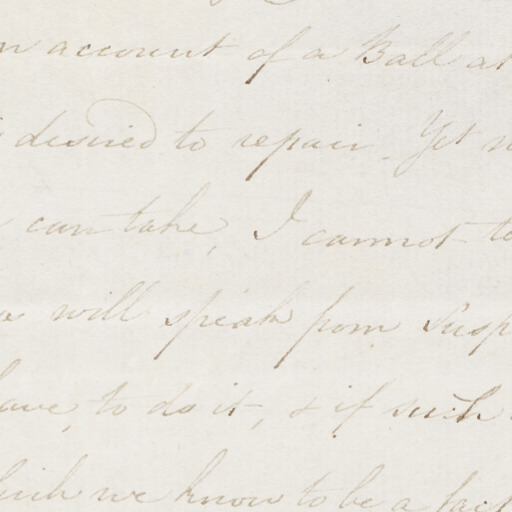 account of a Ball at
desired to repair. Yet
can take, I cannot
will speak from
have, to do it, & if such
which we know to be a fact